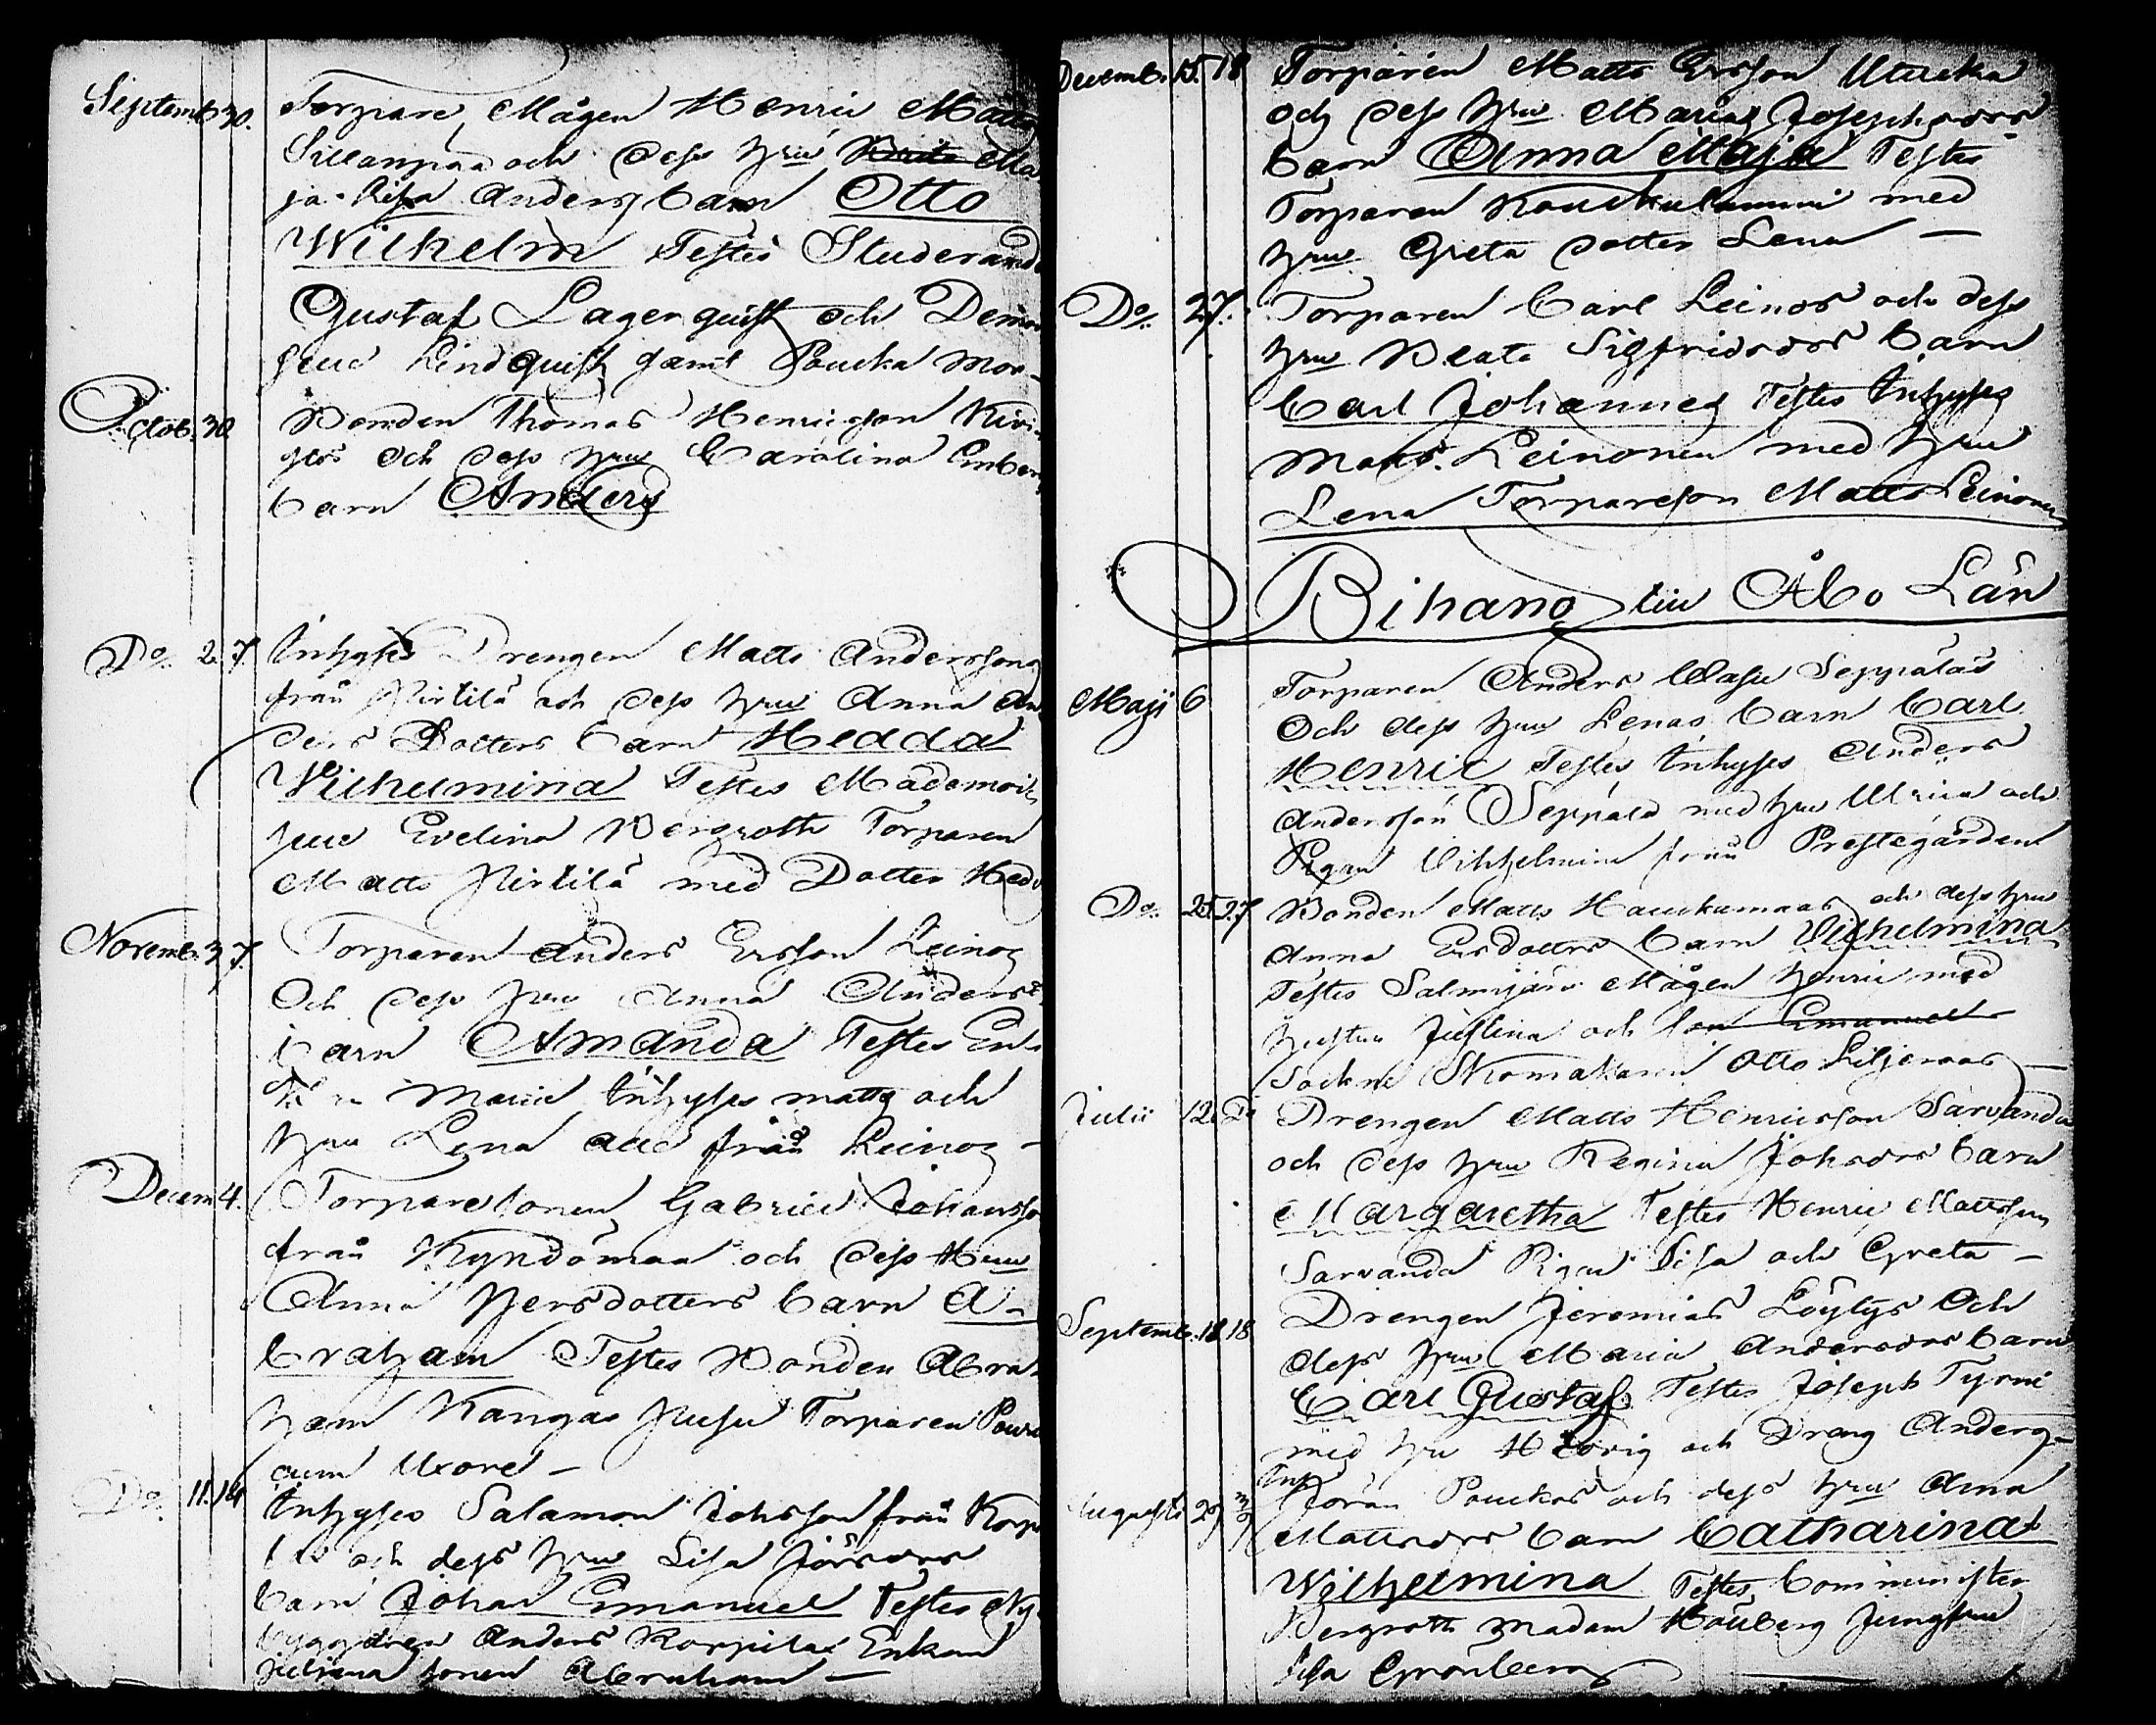 Septemb. 30. Torpare Mågen Henric Matts
Sillanpää och dess hru Brita Ma
ja Lisa Anders barn Otto
Wilhelm Testes Studerande
Gustaf Lagerquist och Demoi
selle Lindquist samt Poucka Mor
Octob. 30 Bonden Thomas Henricsson Kivi
och dess hru Carolina
barn Anders
Do. 2. 7. Inhyses Drengen Matts Anderssons
från Pirtilä och dess hru Anna An
ders Dotters barn Hedda
Wilhelmina Testes Mademoi
selle Evelina Bergroth Torparen
Matts Pirtilä med Dotter Hedv
Novemb. 3. 7. Torparen Anders Ersson Leinos
Och dess hru Anna Anders
barn Amanda Testes
Maria Inhyses Matts och
hru Lena all från Leinos -
Decem 4. Torparesonen Gabriel Johansso
från Kyndömaa och dess Hru
Anna Persdotters barn A-
braham Testes Bonden Abra
ham Kangas Torparen
cum Uxore -
Do. 11. 14 Inhyses Salamon Johsson från Korpi
och dess hru Lisa Jörsdrs
barn Johan Emanuel Testes Ny
byggaren Anders Korpilax Enkan
Juliana sonen Abraham -
Decemb. 15. 18 Torparen Matts Ersson Utucka
och dess hru Marias Josephsdrs
barn Anna Maja Testes
Torparen med
hru Greta dotter Lena -
Do. 27. Torparen Carl Leinos och dess
hru Beata Sigfridsdrs barn
Carl Johannes Testes Inhyses
Matts Leinonen med hru
Lena Torpareson Matts Leinonen
Bihang till Åbo Län
Maji 6 Torparen Anders Seppäläs
Och dess hru Lenas barn Carl
Henric Testes Inhyses Anders
Andersson Seppälä med hru Ulrica och
Pigan Vilhelmina från Prestegården
Do. 25 27 Bonden Matts Hauckamaas och dess hru
Anna Ersdotters barn Vilhelmina
Testes Salmijärvi Mågen Henric med
hustru Justina och son Emanuel
Sockne Skomakaren Otto Liljeroos -
Julii 12. Do Drengen Matts Henricsson Sarvanda
och dess hru Regina Johsdrs barn
Margaretha Testes Henric Mattsson
Sarvanda Pigan Lisa och Greta -
Septemb. 18. 18 Drengen Jeremias Löytys Och
dess hru Maria Andersdrs barn
Carl Gustaf Testes Joseph Tyrni
med hru Hedvig och Dreng Anders -
Inh
Augusti 29 Jöran Pouckas och dess hru Anna
Mattsdrs barn Catharina
Wilhelmina Testes Comminister
Bergroth Madam Jungfru
Lisa Grönberg